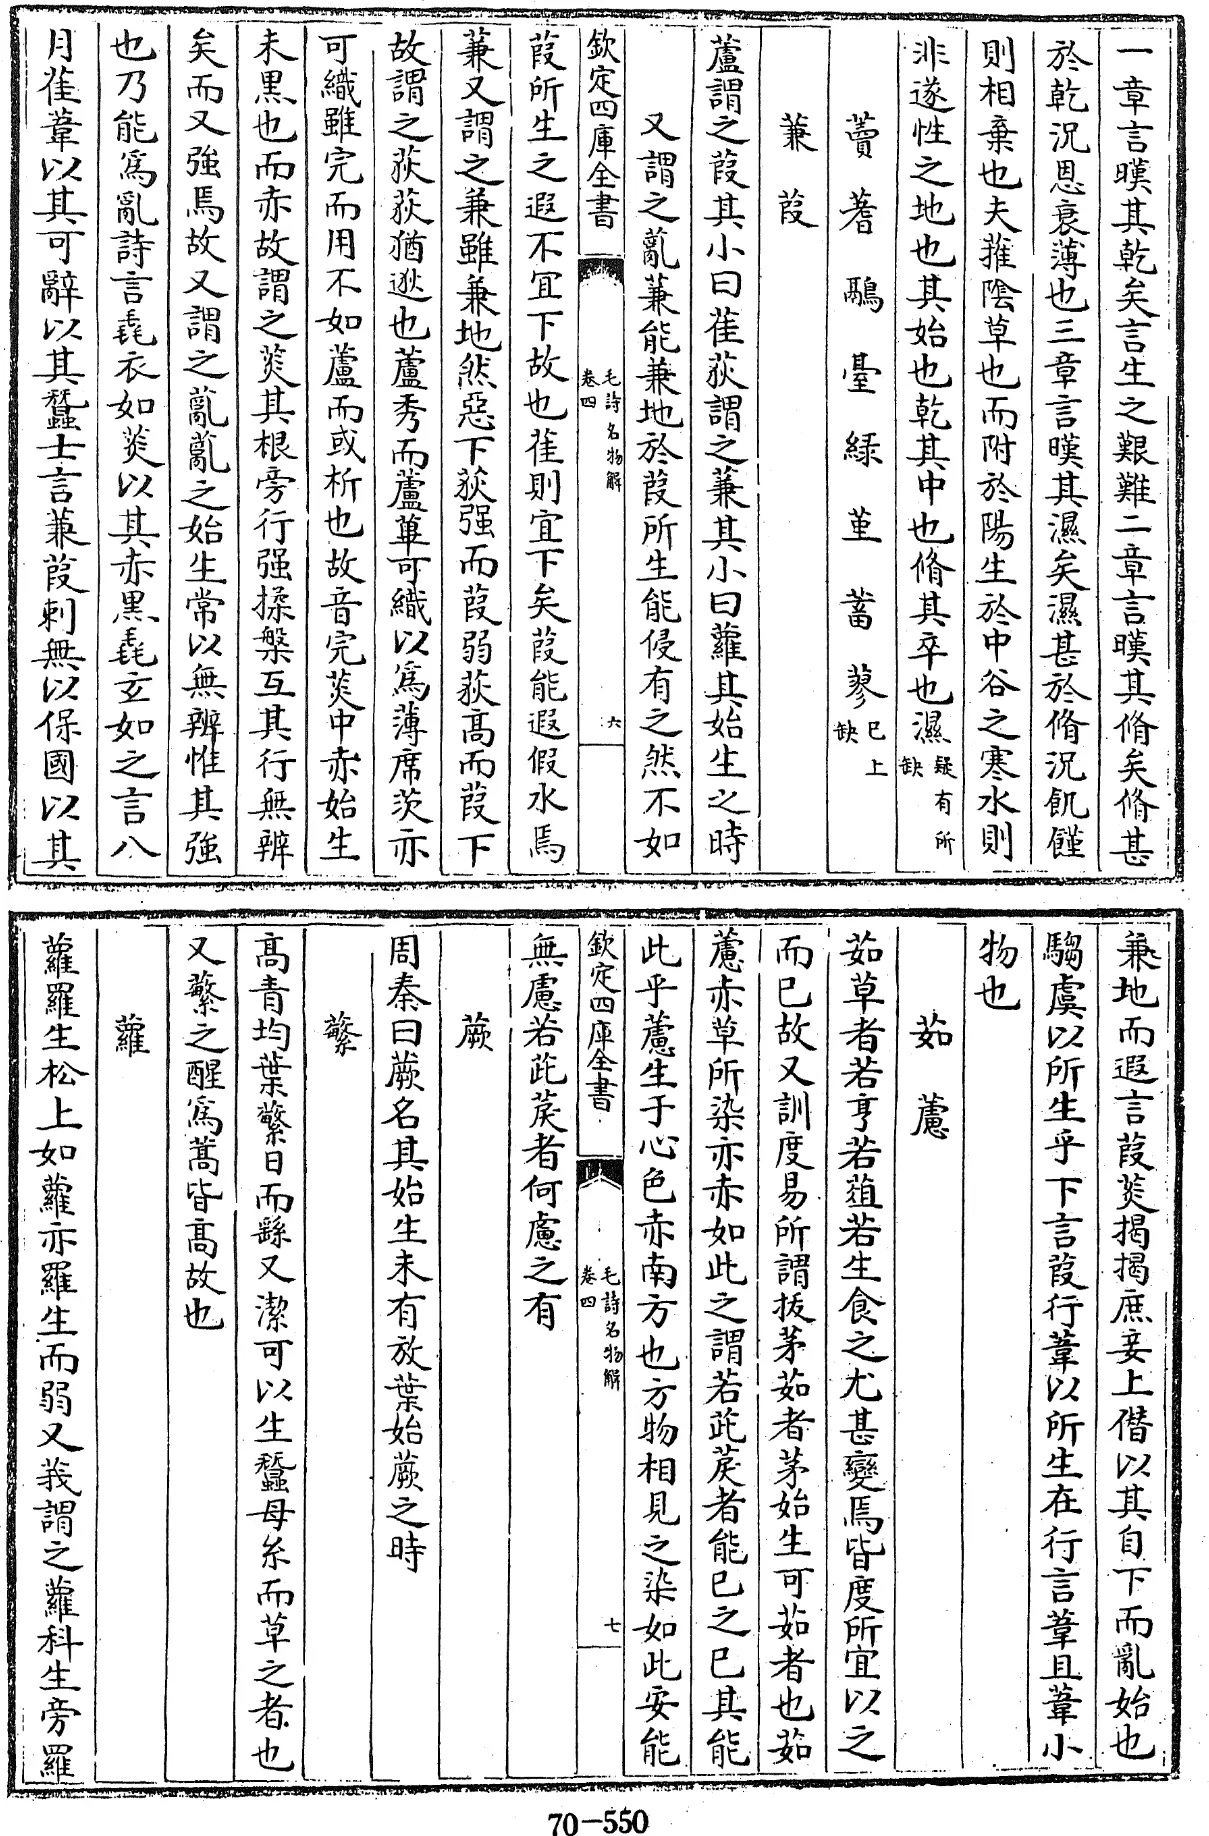 一章言暵其乾矣言生之艱難二章言暵其脩矣脩甚
於乾況恩衰薄也三章言暵其濕矣濕甚於脩況飢饉
則相棄也夫蓷陰草也而附於陽生於中谷之寒水則
非遂性之地也其始也乾其中也脩其卒也濕疑有所缺
藚 蓍 鷊 臺 綠 堇 蓄 蓼已上缺
蒹 葭
蘆謂之葭其小曰萑荻謂之蒹其小曰蘿其始生之時
又謂之薍蒹能兼地於葭所生能侵有之然不如
欽定四庫全書 毛詩名物解 卷四 六
葭所生之遐不宜下故也萑則宜下矣葭能遐假水焉
蒹又謂之蒹雖兼地然惡下荻强而葭弱荻高而葭下
故謂之荻荻猶逖也蘆秀而蘆萆可織以爲薄席茨亦
可織雖完而用不如蘆而或析也故音完菼中赤始生
未黑也而赤故謂之菼其根旁行强揉槃互其行無辨
矣而又強焉故又謂之薍薍之始生常以無辨惟其強
也乃能爲亂詩言毳衣如菼以其赤黑毳立如之言八
月萑葦以其可辭以其蠶士言蒹葭刺無以保國以其
兼地而遐言葭菼揭揭庶妾上僭以其自下而亂始也
騶虞以所生乎下言葭行葦以所生在行言葦且葦小
物也
茹 藘
茹草者若亨若菹若生食之尤甚變焉皆度所宜以之
而已故又訓度易所謂拔茅茹者茅始生可茹者也茹
藘赤草所染亦赤如此之謂若茈蒛者能已之已其能
此乎藘生于心色赤南方也方物相見之染如此安能
欽定四庫全書 毛詩名物解 卷四 七
無慮若茈蒛者何慮之有
蕨
周秦曰蕨名其始生未有放葉始蕨之時
蘩
高青均葉蘩日而繇又潔可以生蠶母糸而草之者也
又蘩之醒爲蒿皆高故也
蘿
蘿羅生松上如蘿亦羅生而弱又義謂之蘿科生旁羅
70-550